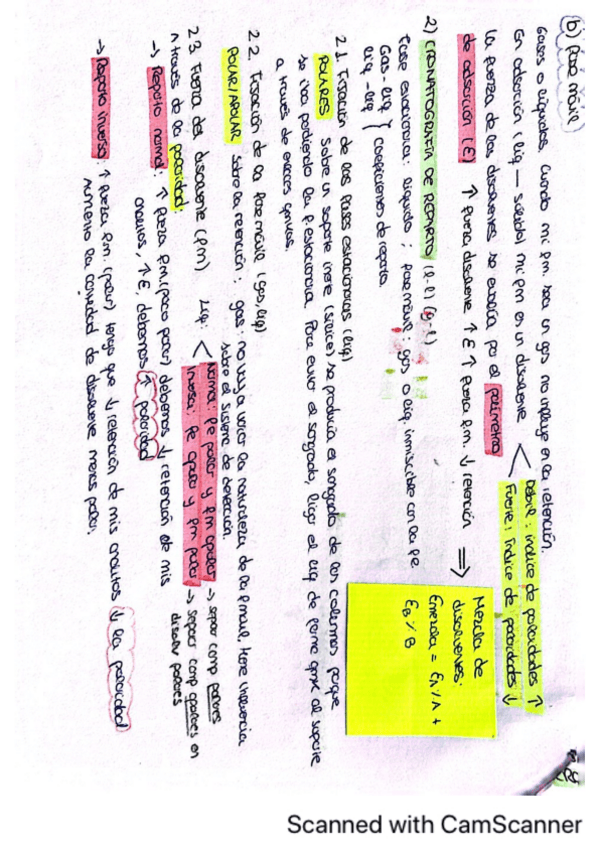 b) Fase móvil
Gases o líquidos. Cuando mi f.m. sea un gas no influye en la retención.
En adsorción (líq — sólido) mi f.m es un disolvente < Débil: índice de polaridades ↑
Fuerte: índice de polaridades ↓
La fuerza de los disolventes se evalúa por el parámetro
de adsorción (Ɛ) ↑ fuerza disolvente ↑ Ɛ ↑ fuerza f.m. ↓ retención ⟹
Mezcla de
disolventes:
Ɛmezcla = ƐA % A +
ƐB % B
2) CROMATOGRAFÍA DE REPARTO (l-l) (g-l)
Fase estacionaria: líquido ; fase móvil: gas o líq. inmiscible con la f.e
Gas - líq } Coeficientes de reparto
líq - líq
2.1. Fijación de las fases estacionarias (líq)
POLARES Sobre un soporte inerte (sílice) se producía el sangrado de las columnas porque
se iba perdiendo la f. estacionaria. Para evitar el sangrado, ligo el líq de forma qmk al soporte
a través de enlaces químicos.
2.2. Fijación de la fase móvil (gas, líq)
POLAR/APOLAR Sobre la retención: gas: no voy a variar la naturaleza de la f. móvil, tiene influencia
sobre el sistema de detección.
Líq: < Normal: f.e polar y f.m apolar → separar comp polares
Inversa: f.e apolar y f.m polar → separar comp apolares en
disolv polares
2.3. Fuerza del disolvente (f.m)
A través de la polaridad:
→ Reparto normal: ↑ fuerza f.m. (poco polar) debemos ↓ retención de mis
analitos, ↑ Ɛ, debemos ↑ polaridad
→ Reparto inverso: ↑ fuerza f.m. (polar) tengo que ↓ retención de mis analitos ↓ la polaridad
Aumento la cantidad de disolvente menos polar.
Scanned with CamScanner